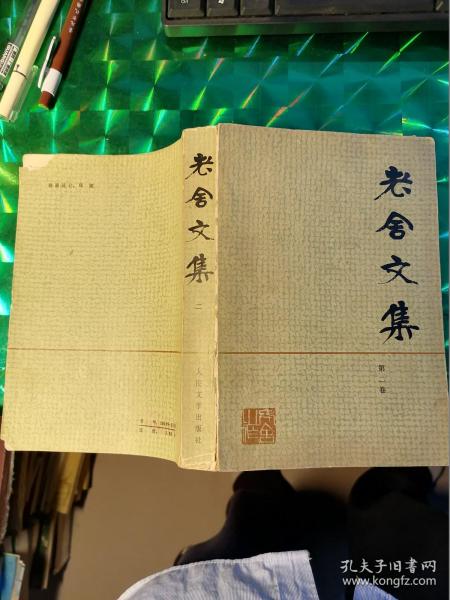 老舍文集
第一卷
老舍文集
二
人民文学出版社
孔夫子旧书网
www.kongfz.com